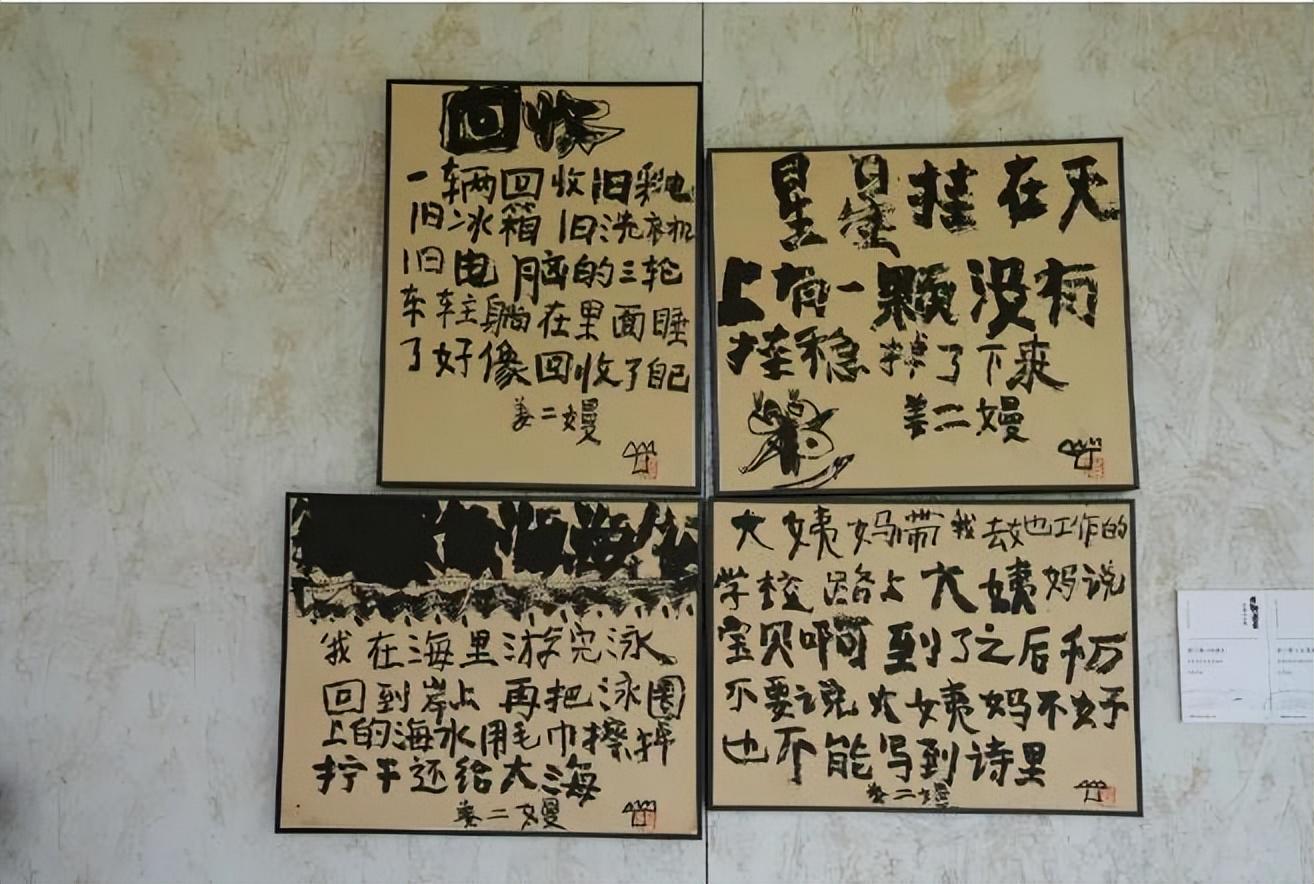 回收
一辆回收旧彩电
旧冰箱 旧洗衣机
旧电脑的三轮
车 车主躺在里面睡
了好像回收了自己
姜二嫚
星星挂在天
上有一颗没有
挂稳掉了下来
姜二嫚
我在海里游完泳
回到岸上 再把泳圈
上的海水用毛巾擦掉
拧干还给大海
姜二嫚
大姨妈带我去她工作的
学校 路上大姨妈说
宝贝啊到了之后千万
不要说大姨妈不好
也不能写到诗里
姜二嫚